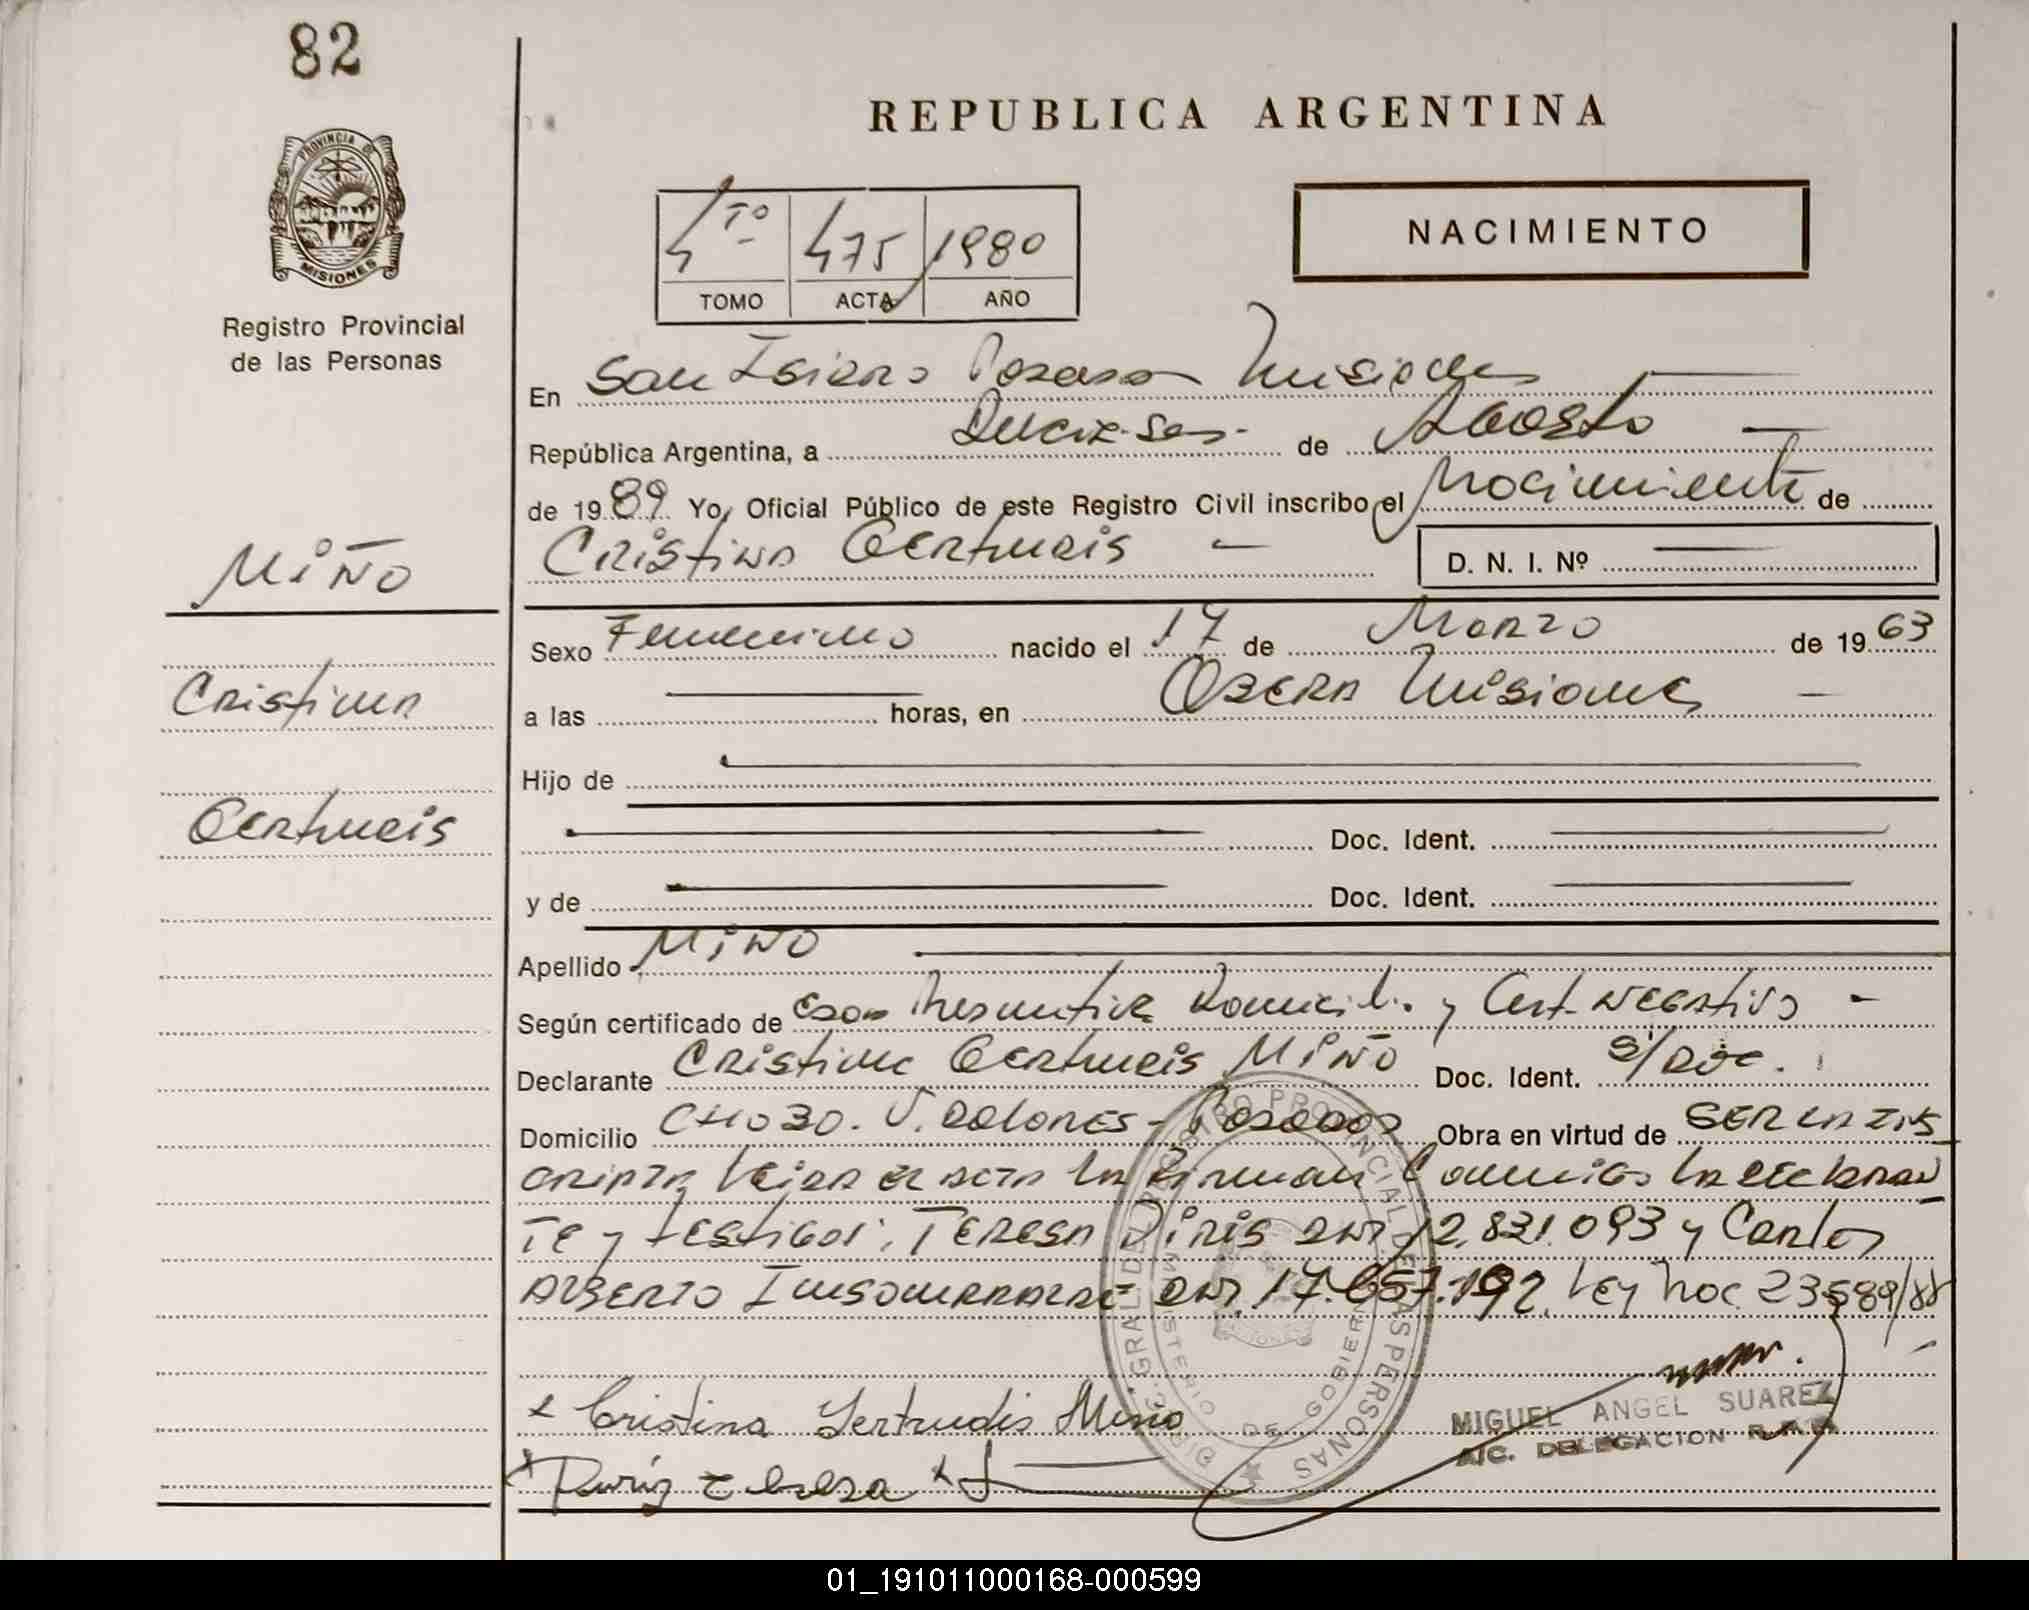 82
REPUBLICA ARGENTINA
PROVINCIA DE
MISIONES
Registro Provincial
de las Personas
4 To 475 1980
TOMO ACTA AÑO
NACIMIENTO
En San Isidro Posadas Misiones
República Argentina, a Dieciseis de Agosto
de 1989 Yo, Oficial Público de este Registro Civil inscribo el Nacimiento de
Cristina Gertrudis
D. N. I. Nº
MIÑO
Cristina
Gertrudis
Sexo Femenino nacido el 17 de Marzo de 1963
a las horas, en Obera Misiones
Hijo de
Doc. Ident.
y de Doc. Ident.
Apellido MIÑO
Según certificado de Presuntiva Domicil. y Cert. Negativo
Declarante Cristina Gertrudis MIÑO Doc. Ident. S/Doc.
Domicilio CH 030. V. Dolores - Posadas Obra en virtud de SER LA INS
CRIPTA Leida el acta la Firman Conmigo la declaran
TE y testigos: TERESA DNI 12.831.093 y Carlos
Alberto DNI. 17.657.192. Ley Nac 23589/88
x Cristina Gertrudis Miño
x x
DIRECC. GRAL. DEL REGISTRO PROVINCIAL DE LAS PERSONAS
MINISTERIO DE GOBIERNO
MIGUEL ANGEL SUAREZ
A/C. DELEGACION R.P.P.
01_191011000168-000599